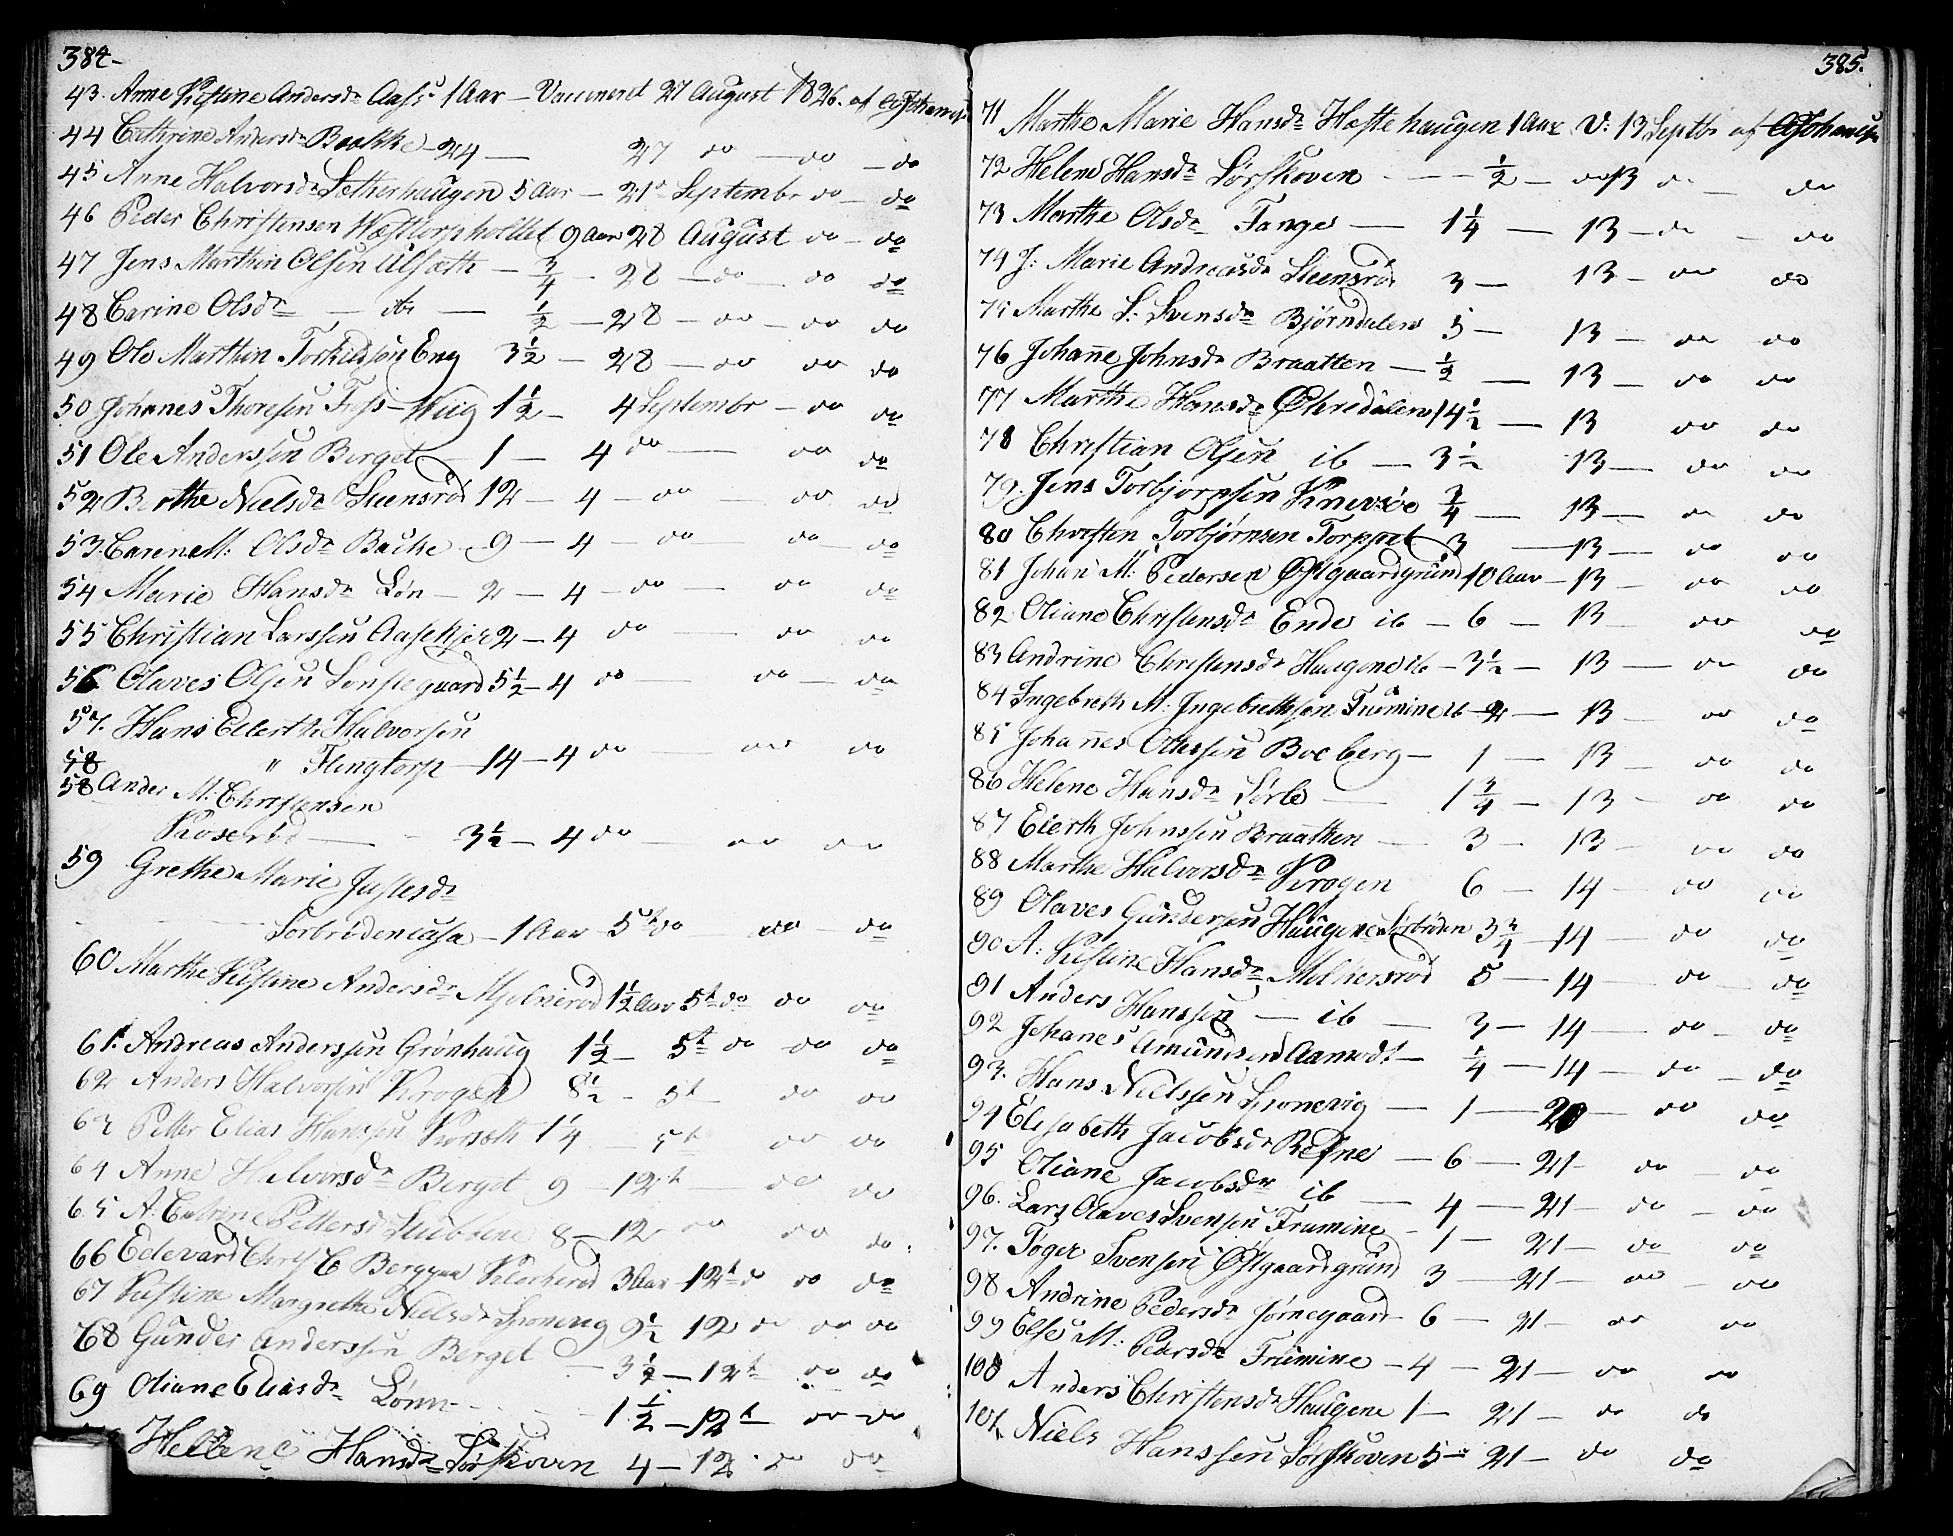 384-
43. Anne Kistine Andersdr Aas: 1 Aar - Vaccineret 27 August 1826. af
44 Cathrine Andersdr Baakke - 24 - 27 do - do - do
45 Anne Halvorsdr Setherhaugen 5 Aar - 21de Septembr do - do
46 Peder Christensen Westtorphollet 9 Aar 28 August do - do
47 Jens Marthin Olsen Ulsæth - 3/4 - 28 - do - do do
48 Carine Olsdr - ib - 1/2 - 28 - do - do do
49 Ole Marthin Torkildsøn Eng 3 1/2 - 28 - do do do
50 Johanes Thoresen Foss-Wiig 1 1/2 - 4 Septembr - do do
51 Ole Anderssen Berget - 1 - 4 do - do do
52 Berthe Nielsdr Steensrød 12 - 4 - do - do do
53. Caren M: Olsdr Bache - 9 - 4 - do - do - do
54 Marie Hansdr Løn - 2 - 4 - do - do do
55 Christian Larssen Aasekjer 2 - 4 do - do do
56 Olaves Olsen Tonstegaard 5 1/2 - 4 do - do - do
57. Hans Ellerth Halvorsen
58 " Flengtorp - 14 - 4 do - do do
58 Ander M: Christensen
Koserød - 3 1/2 - 4 do - do do
59 Grethe Marie Justesdr
Sorbrødencasa - 1 Aar - 5t do - do - do
60 Marthe Kistine Andersdr Mjølnerød 1 1/2 Aar 5t do do do
61. Andreas Anderssen Grønhaug 1 1/2 - 5t do do do
62 Anders Halvorsen Krogen 8 1/2 - 5t - do do
63 Petter Elias Hanssen Korsæth 1 1/4 - 5t - do do
64 Anne Halvorsdr Berget 9 - 12t - do do
65 A. Catrine Pettersd Stubbene 8 - 12 do do do
66 Edevard Chrisf C Berggren Kilerød 3 Aar - 12t do do do
67 Kistine Margrethe Nielsdr Sponevig 9 1/2 12 do do do
68 Gunder Anderssen Berget - 3 1/2 - 12t do do
69 Oliane Eliasdr Lønn - 1 1/2 - 12t do do
Hellene Hansdr Sørskoven 4 - 12 do do
385.
71 Marthe Marie Hansdr Hæste haugen 1 Aar V: 13 Septbr af
72 Helene Hansdr Sørskoven - - - 1/2 - do 13 do - do
73 Marthe Olsdr Tange - 1 1/4 - 13 - do - do
74 J: Marie Andreasdr Steensrød 3 - 13 - do do
75 Marthe S: Svensdr Bjørndalen 5 - 13 - do do
76 Johanne Johnsdr Braatten - 1/2 - 13 - do do
77 Marthe Hansdr Øhredalen 14 1/2 - 13 do do
78 Christian Olsen ib - 3 1/2 13 - do do
79. Jens Torbjørnsen Knivsøe 3/4 - 13 - do do
80 Christen Torbjørnsen Torppet 3 - 13 - do do
81 Johan M: Pedersen Østgaardgrund 10 Aar - 13 - do do
82 Oliane Christensdr Ende ib - 6 - 13 - do do
83 Andrine Christensdr Haugene ib - 3 1/2 - 13 - do do
84 Ingebreth M: Ingebrethsen Trumine ib - 2 - 13 - do do
85 Johannes Ottessen Boeberg - 1 - 13 - do do
86 Helene Hansdr Sørle - 1 3/4 - 13 - do do
87 Elerth Johnssen Braathen - 3 - 13 - do do
88 Marthe Halvorsdr Krogen 6 - 14 - do do
89 Olaves Gundersen Haugene Sorbrøden 3 3/4 - 14 - do do
90 A: Kistine Hansdr Molnersrød 5 - 14 - do - do
91 Anders Hanssen - ib - 3 - 14 - do - do
92 Johanes Amundsen Aamodt - 1/4 - 14 - do - do
93. Hans Nielssen Sponevig - 1 - 20 - do do
94 Elisabeth Jacobsdr Refne - 6 - 21 - do - do
95 Oliane Jacobsdr ib - 4 - 21 - do - do
96. Lars Olaves Svensen Trumine - 1 - 21 - do - do
97. Tøger Svensen Østgaardgrund 3 - 21 - do - do
98 Andrine Pedersdr Jørnegaard 6 - 21 - do do
99 Else M: Pedrsdr Trumine - 4 - 21 - do do
100 Anders Christensdr Haugene 1 - 21 - do do
101 Niels Hanssen Sørskoven 5 - 21 - do do